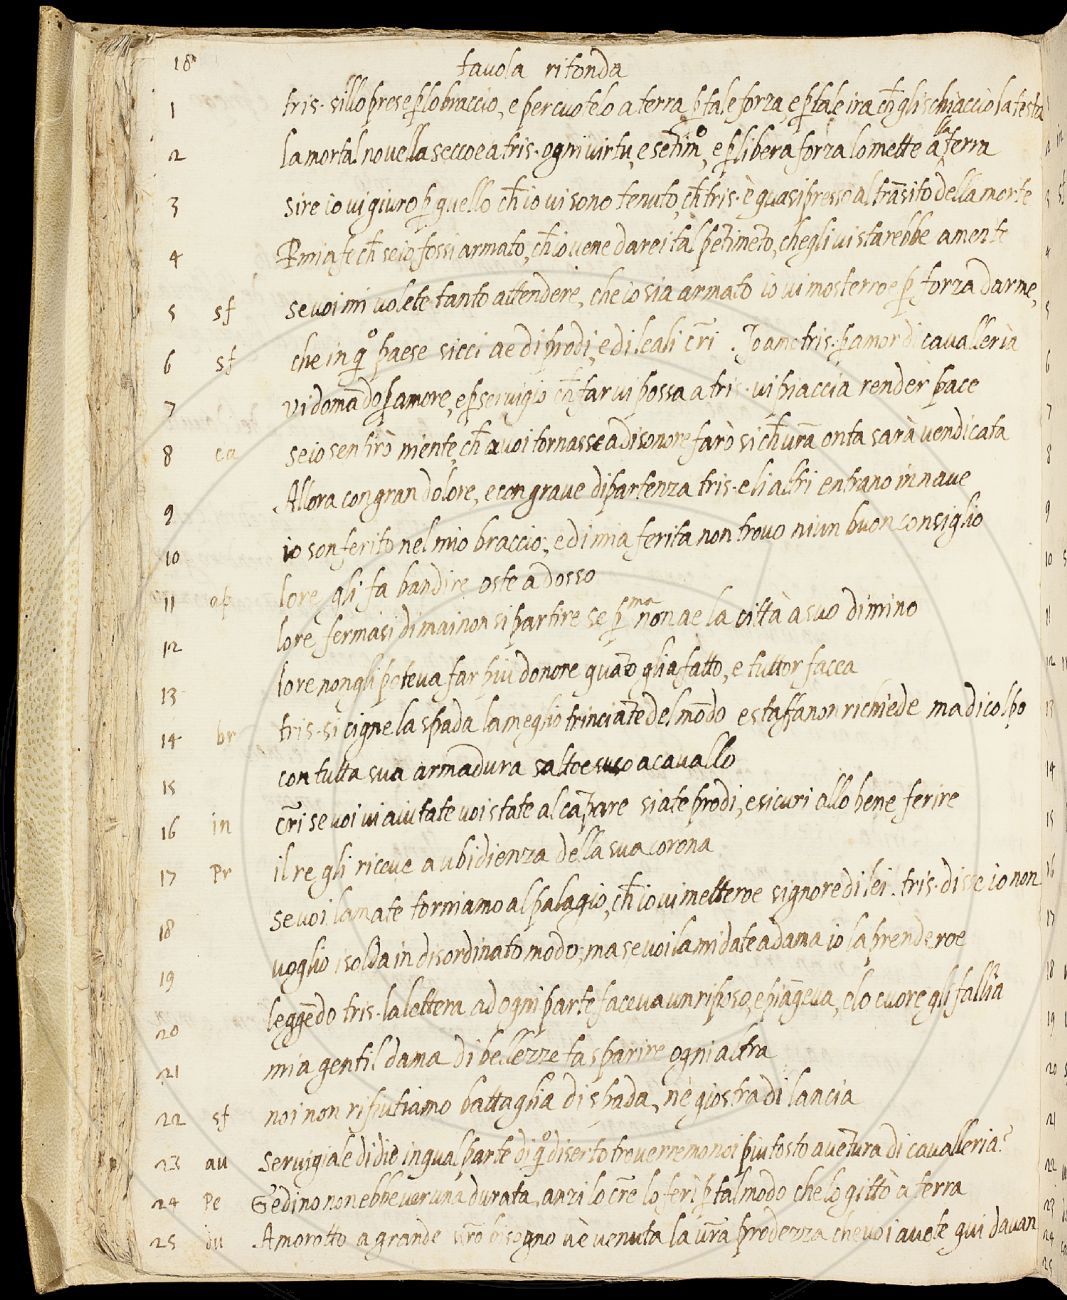 18 tavola ritonda
1 tris. sillo prese p̱ lo braccio, e percuotelo a terra p̱ tale forza, e p̱ tale ira ch̄ gli schiacciò la testa
2 la mortal novella seccoe a tris. ogni virtu, e p̱ libera forza lo mette alla terra
3 sire io vi giuro p̱ quello ch̄ io vi sono tenuto, ch̄ tris. è quasi presso al trāsito della morte
4 P̱ mia fe ch̄ se io fossi armato, ch̄ io ve ne darei tal petineto, che gli vi starebbe a mente
5 sf se voi mi volete tanto attendere, che io sia armato io vi mosterroe p̱ forza darme,
6 sf che in q̊ paese sicci ae di prodi, e di leali cr̄i. Io amo tris. p̱ amor di cavalleria
7 vi domādo p̱ amore, e p̱ servigio ch̄ far vi possa a tris. vi piaccia render pace
8 ca se io sentirò niente, ch̄ a voi tornasse a disonore farò si ch̄ vr̄a onta sarà vendicata
9 Allora con gran dolore, e con grave dipartenza tris. e li altri entrano in nave
10 io son ferito nel mio braccio, e di mia ferita non trovo niun buon consiglio
11 ab lore gli fa bandire oste adosso
12 lore fermasi di mai non si partire se p̱ma non ae la città a suo dimino
13 lore non gli poteva far piu donore quāto gli a fatto, e tuttor facea
14 br tris. si cigne la spada la meglio trinciāte del mōdo e staffa non richiede ma di colpo
15 con tutta sua armadura saltoe suso a cavallo
16 in cr̄i se voi vi aiutate voi state al cāpare siate prodi, e sicuri allo bene ferire
17 Pr il re gli riceve a ubidienza della sua corona
18 se voi lamate torniamo al palagio, ch̄ io vi metteroe signore di lei. tris. disse io non
19 voglio isolda in disordinato modo, ma se voi la mi date a dama io la prenderoe
20 leggēdo tris. la lettera ad ogni parte faceva un riposo, e piāgeva, e lo cuore gli fallia
21 mia gentil dama di bellezze fa sparire ogni altra
22 sf noi non rifiutiamo battaglia di spada, nè giostra di lancia
23 au servigiale di dio in qual parte di q̊ diserto troverremo noi piu tosto avētura di cavalleria?
24 Pe Gedino non ebbe veruna durata, anzi lo cr̄e lo ferì p̱ tal modo che lo gittò a terra
25 du Amorotto a grande vr̄o bisogno vè venuta la vr̄a prodezza che voi avete qui davan